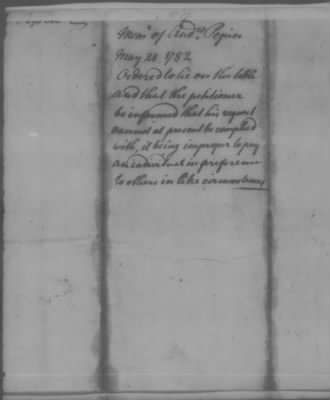 Meml. of Andw. Pepin
May 28. 1782
Ordered to lie on the table
and that the petitioner
be informed that his request
cannot at present be complied
with, it being improper to pay
an individual in preference
to others in like circumstances